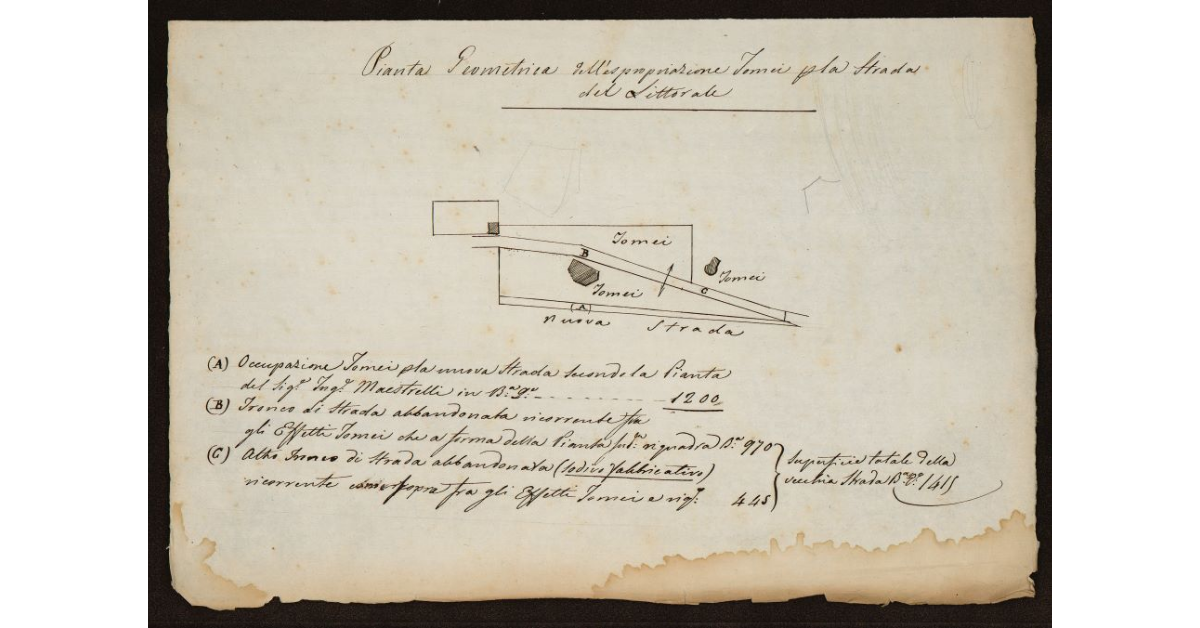 Pianta Geometrica dell'espropriazione Tomei pla Strada
del Littorale
Tomei
B
Tomei
C
Tomei
(A)
Nuova Strada
(A) Occupazione Tomei pla nuova Strada secondo la Pianta
del Sigr. Ingr. Maestrelli in Bra. qe. 1200
(B) Tronco di Strada abbandonata ricorrente fra
gli Effetti Tomei che a forma della Pianta sudta. riquadra Bra. 970
(C) Altro Tronco di Strada abbandonata (Sodivo fabbricativo)
ricorrente come sopra fra gli Effetti Tomei e riqa. 445
Superficie totale della
vecchia Strada Bra. Qe. 1415